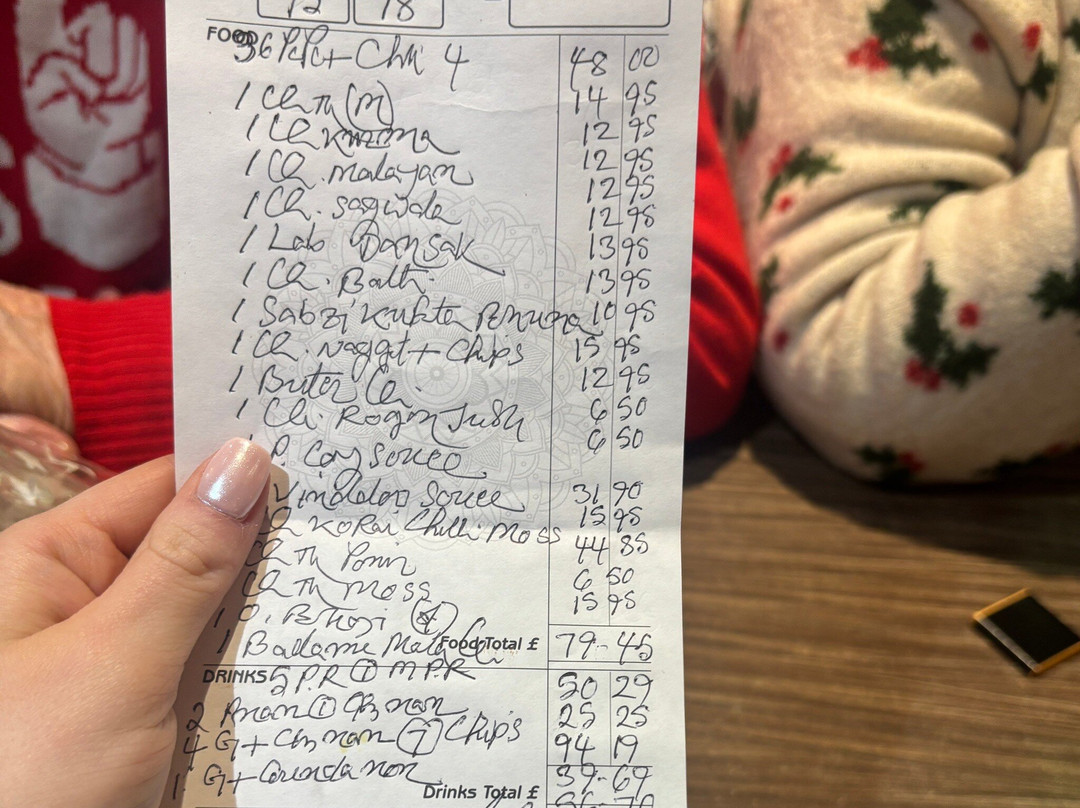 12 18
FOOD
36 PPC + Chi 4 48 00
1 Ch Th (M) 14 95
1 Ch Korma 12 95
1 Ch. malayan 12 95
1 Ch. sagwala 12 95
12 95
1 Lab Dansak 13 95
1 Ch. Balti 13 95
1 Sabzi Kufta 10 95
1 Ch. Nagget + Chips 15 95
1 Buter Ch. 12 95
1 Ch. Rogon Jush 6 50
P. Cay Souce 6 50
Vindaloo Souce 31 90
Korai Chilli Moss 15 95
Ch Th 44 85
Ch Th Moss 6 50
1 O. Bhaji (4) 15 95
1 Badame
Food Total £ 79-45
DRINKS 5 P.R (1) M P.R 50 29
2 Nan (1) nan 25 25
4 G + nan (7) Chips 94 19
1 G + nan 39-69
Drinks Total £